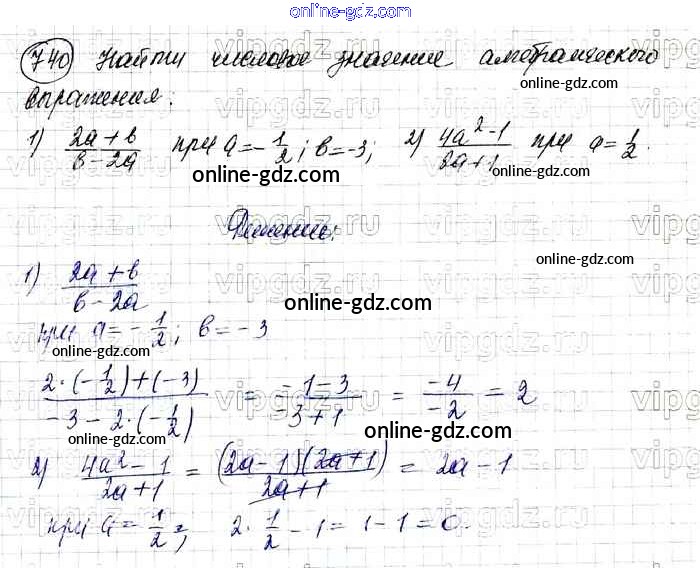 online-gdz.com
740 Найти числовое значение алгебраического
online-gdz.com
выражения:
1) (2a + b)/(b - 2a) при a = -1/2; b = -3; 2) (4a² - 1)/(2a + 1) при a = 1/2.
online-gdz.com
online-gdz.com
vipgdz.ru
Решение:
online-gdz.com
1) (2a + b)/(b - 2a)
online-gdz.com
при a = - 1/2; b = - 3
online-gdz.com
(2·(-1/2)+(-3))/(-3-2·(-1/2)) = (-1-3)/(-3+1) = (-4)/(-2) = 2
online-gdz.com
online-gdz.com
2) (4a² - 1)/(2a + 1) = ((2a - 1)(2a + 1))/(2a + 1) = 2a - 1
при a = 1/2; 2 · 1/2 - 1 = 1 - 1 = 0.
online-gdz.com